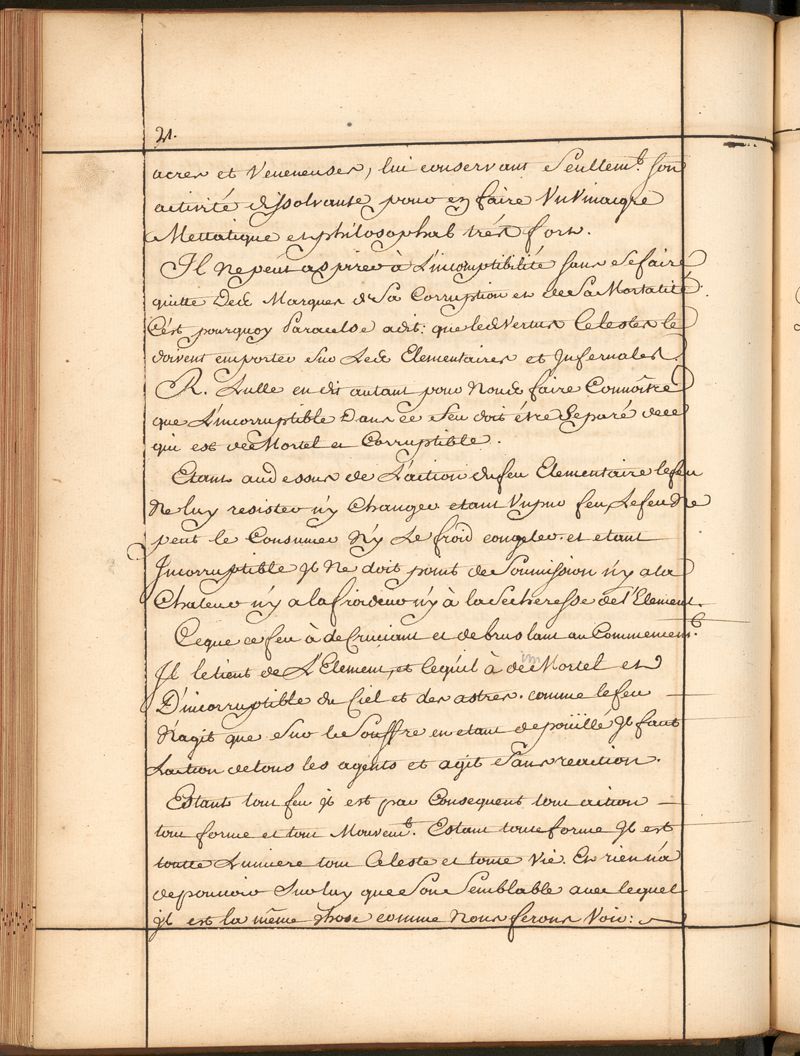 21.
acres et Veneneuses, lui conservant Seullem.t son
activité dissolvante pour en faire Vn Vinaigre
Mettalique et philosophal trést fort.
Il ne peut aspirer à L'incorruptibilité sans se faire
quitte Des Marques de Sa Corruption et de Sa Mortalité.
C'ést pourquoy Paracelse a dit: que les Vertus Celestes le
doivent emporter sur Les Elementaires et Infernales.
R. Lulle en dit autant pour Nous faire Connoître
que L'incorruptible Dans ce feu doit être Separé de ce
qui est de Mortel et Corruptible.
Etant au dessus de L'action du feu Elementaire le feu
ne luy resister n'y changer etant Vn pur feu, Le feu Ne
peut le Consumer N'y Le froid congeler. et etant
Incorruptible Il Ne doit point de Soumission n'y a la
Chaleur n'y a la froideur n'y à la Secheresse de l'Element.
Ce que ce feu à de Cruciant et de bruslant au Commencem.t
Il le tient de L'Element, et ce qu'il à de imMortel et
D'incorruptible du Ciel et des astres. comme le feu
N'agit que sur le Souffre en etant depoüillé Il fait
L'action de tous les agents et agit Sans reaction.
Estant tout feu il est par Consequent tout action
tout forme et tout Mouvem.t. Estant toute forme Il est
toutte Lumiere tout Celeste et toute Vie. Et rien n'a
de pouvoir Sur luy que Son Semblable avec lequel
il est la même chose comme Nous ferons Voir: